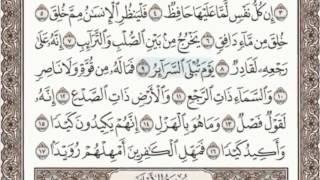 ٣ إِن كُلُّ نَفْسٍ لَّمَّا عَلَيْهَا حَافِظٌ ٤ فَلْيَنظُرِ ٱلْإِنسَٰنُ مِمَّ خُلِقَ
٥ خُلِقَ مِن مَّآءٍ دَافِقٍ ٦ يَخْرُجُ مِنۢ بَيْنِ ٱلصُّلْبِ وَٱلتَّرَآئِبِ ٧ إِنَّهُۥ عَلَىٰ
رَجْعِهِۦ لَقَادِرٌ ٨ يَوْمَ تُبْلَى ٱلسَّرَآئِرُ ٩ فَمَا لَهُۥ مِن قُوَّةٍ وَلَا نَاصِرٍ
١٠ وَٱلسَّمَآءِ ذَاتِ ٱلرَّجْعِ ١١ وَٱلْأَرْضِ ذَاتِ ٱلصَّدْعِ ١٢ إِنَّهُۥ
لَقَوْلٌ فَصْلٌ ١٣ وَمَا هُوَ بِٱلْهَزْلِ ١٤ إِنَّهُمْ يَكِيدُونَ كَيْدًا
١٥ وَأَكِيدُ كَيْدًا ١٦ فَمَهِّلِ ٱلْكَٰفِرِينَ أَمْهِلْهُمْ رُوَيْدًۢا ١٧